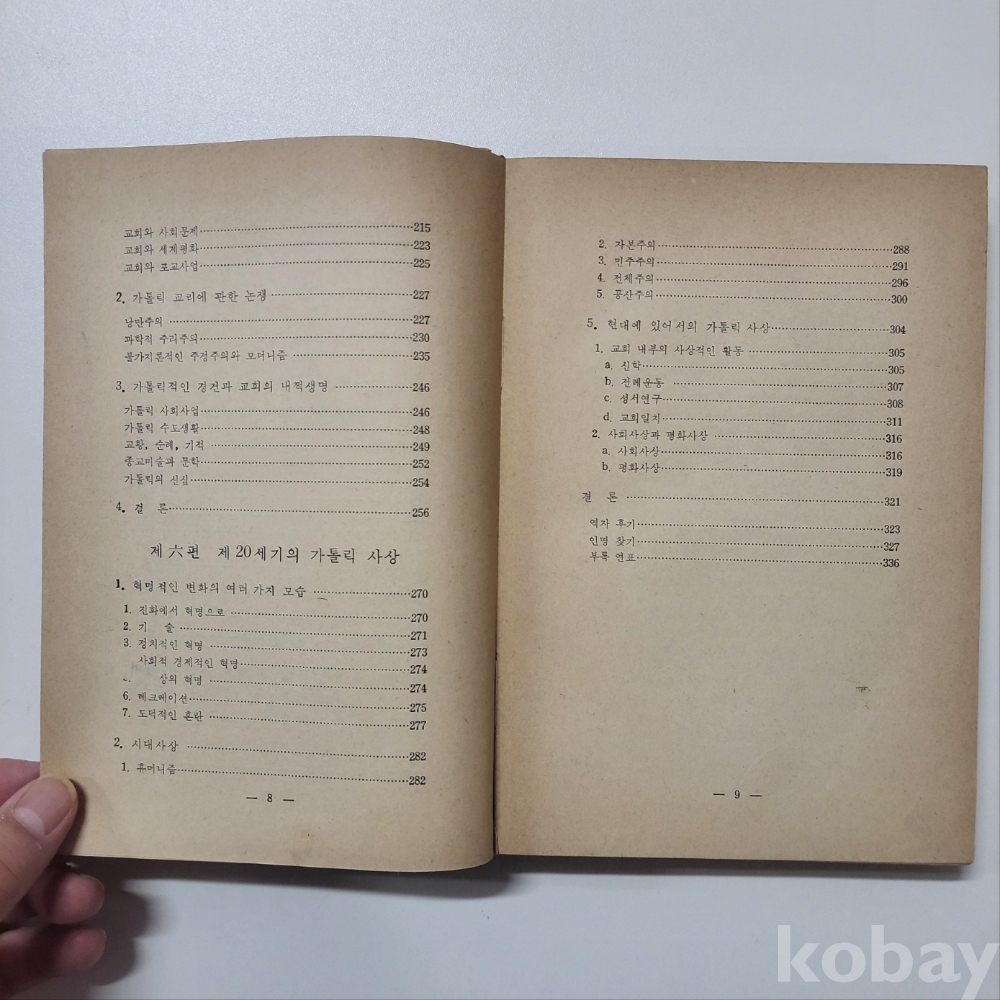 교회와 사회문제 215
교회와 세계평화 223
교회와 포교사업 225
2. 가톨릭 교리에 관한 논쟁 227
낭만주의 227
과학적 주리주의 230
불가지론적인 주정주의와 모더니즘 235
3. 가톨릭적인 경건과 교회의 내적생명 246
가톨릭 사회사업 246
가톨릭 수도생활 248
교황, 순례, 기적 249
종교미술과 문학 252
가톨릭의 신심 254
4. 결 론 256
제六편 제20세기의 가톨릭 사상
1. 혁명적인 변화의 여러 가지 모습 270
1. 진화에서 혁명으로 270
2. 기 술 271
3. 정치적인 혁명 273
사회적 경제적인 혁명 274
상의 혁명 274
6. 레크레이션 275
7. 도덕적인 혼란 277
2. 시대사상 282
1. 휴머니즘 282
— 8 —
2. 자본주의 288
3. 민주주의 291
4. 전체주의 296
5. 공산주의 300
5. 현대에 있어서의 가톨릭 사상 304
1. 교회 내부의 사상적인 활동 305
a. 신학 305
b. 전례운동 307
c. 성서연구 308
d. 교회일치 311
2. 사회사상과 평화사상 316
a. 사회사상 316
b. 평화사상 319
결 론 321
역자 후기 323
인명 찾기 327
부록 연표 336
— 9 —
kobay